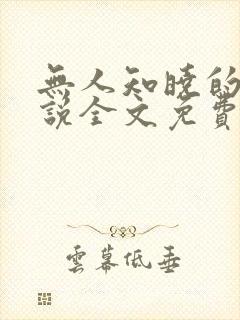 無人知曉的
說全文免費
雲幕低垂